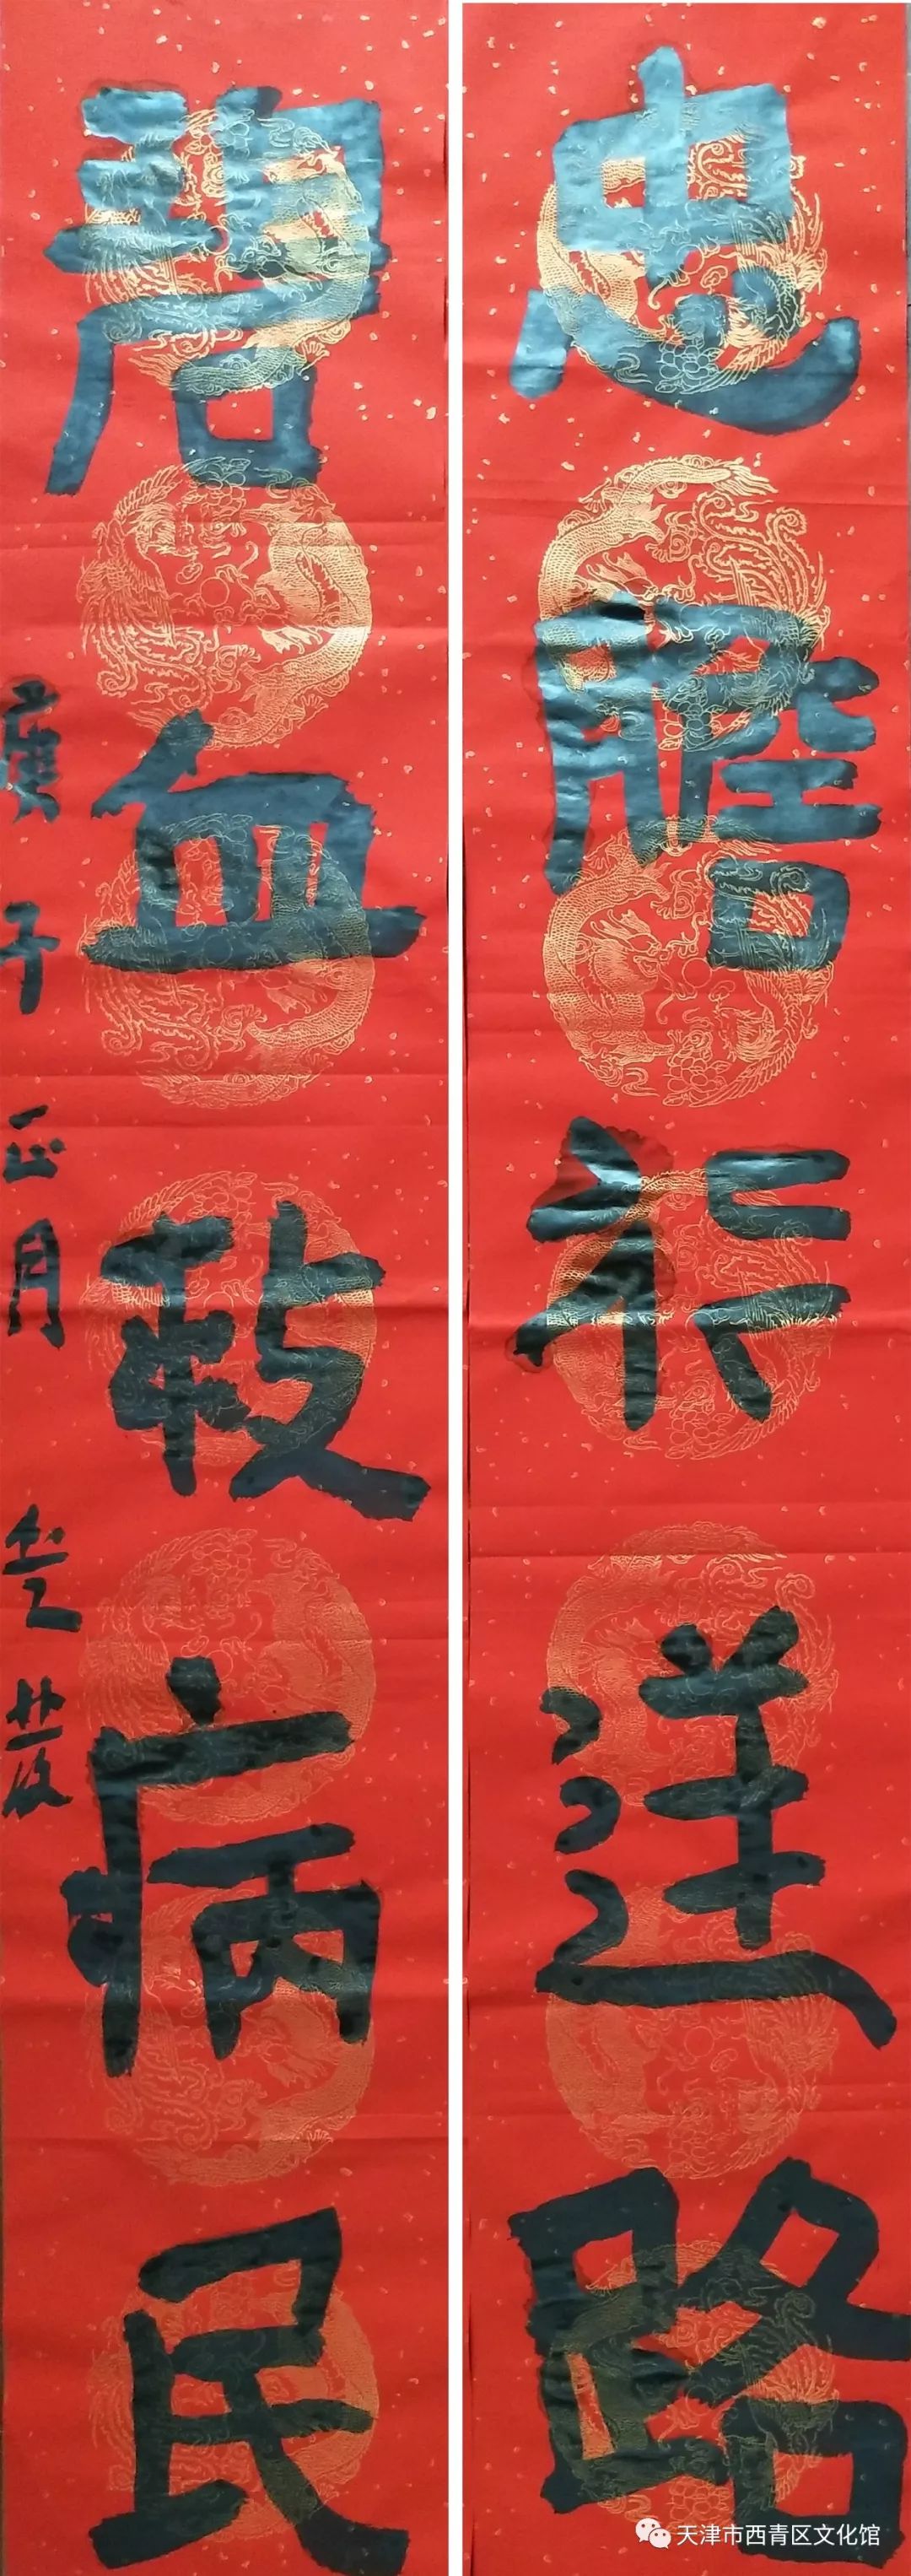 忠膽路
碧血救病民
庚子正月
天津市西青区文化馆